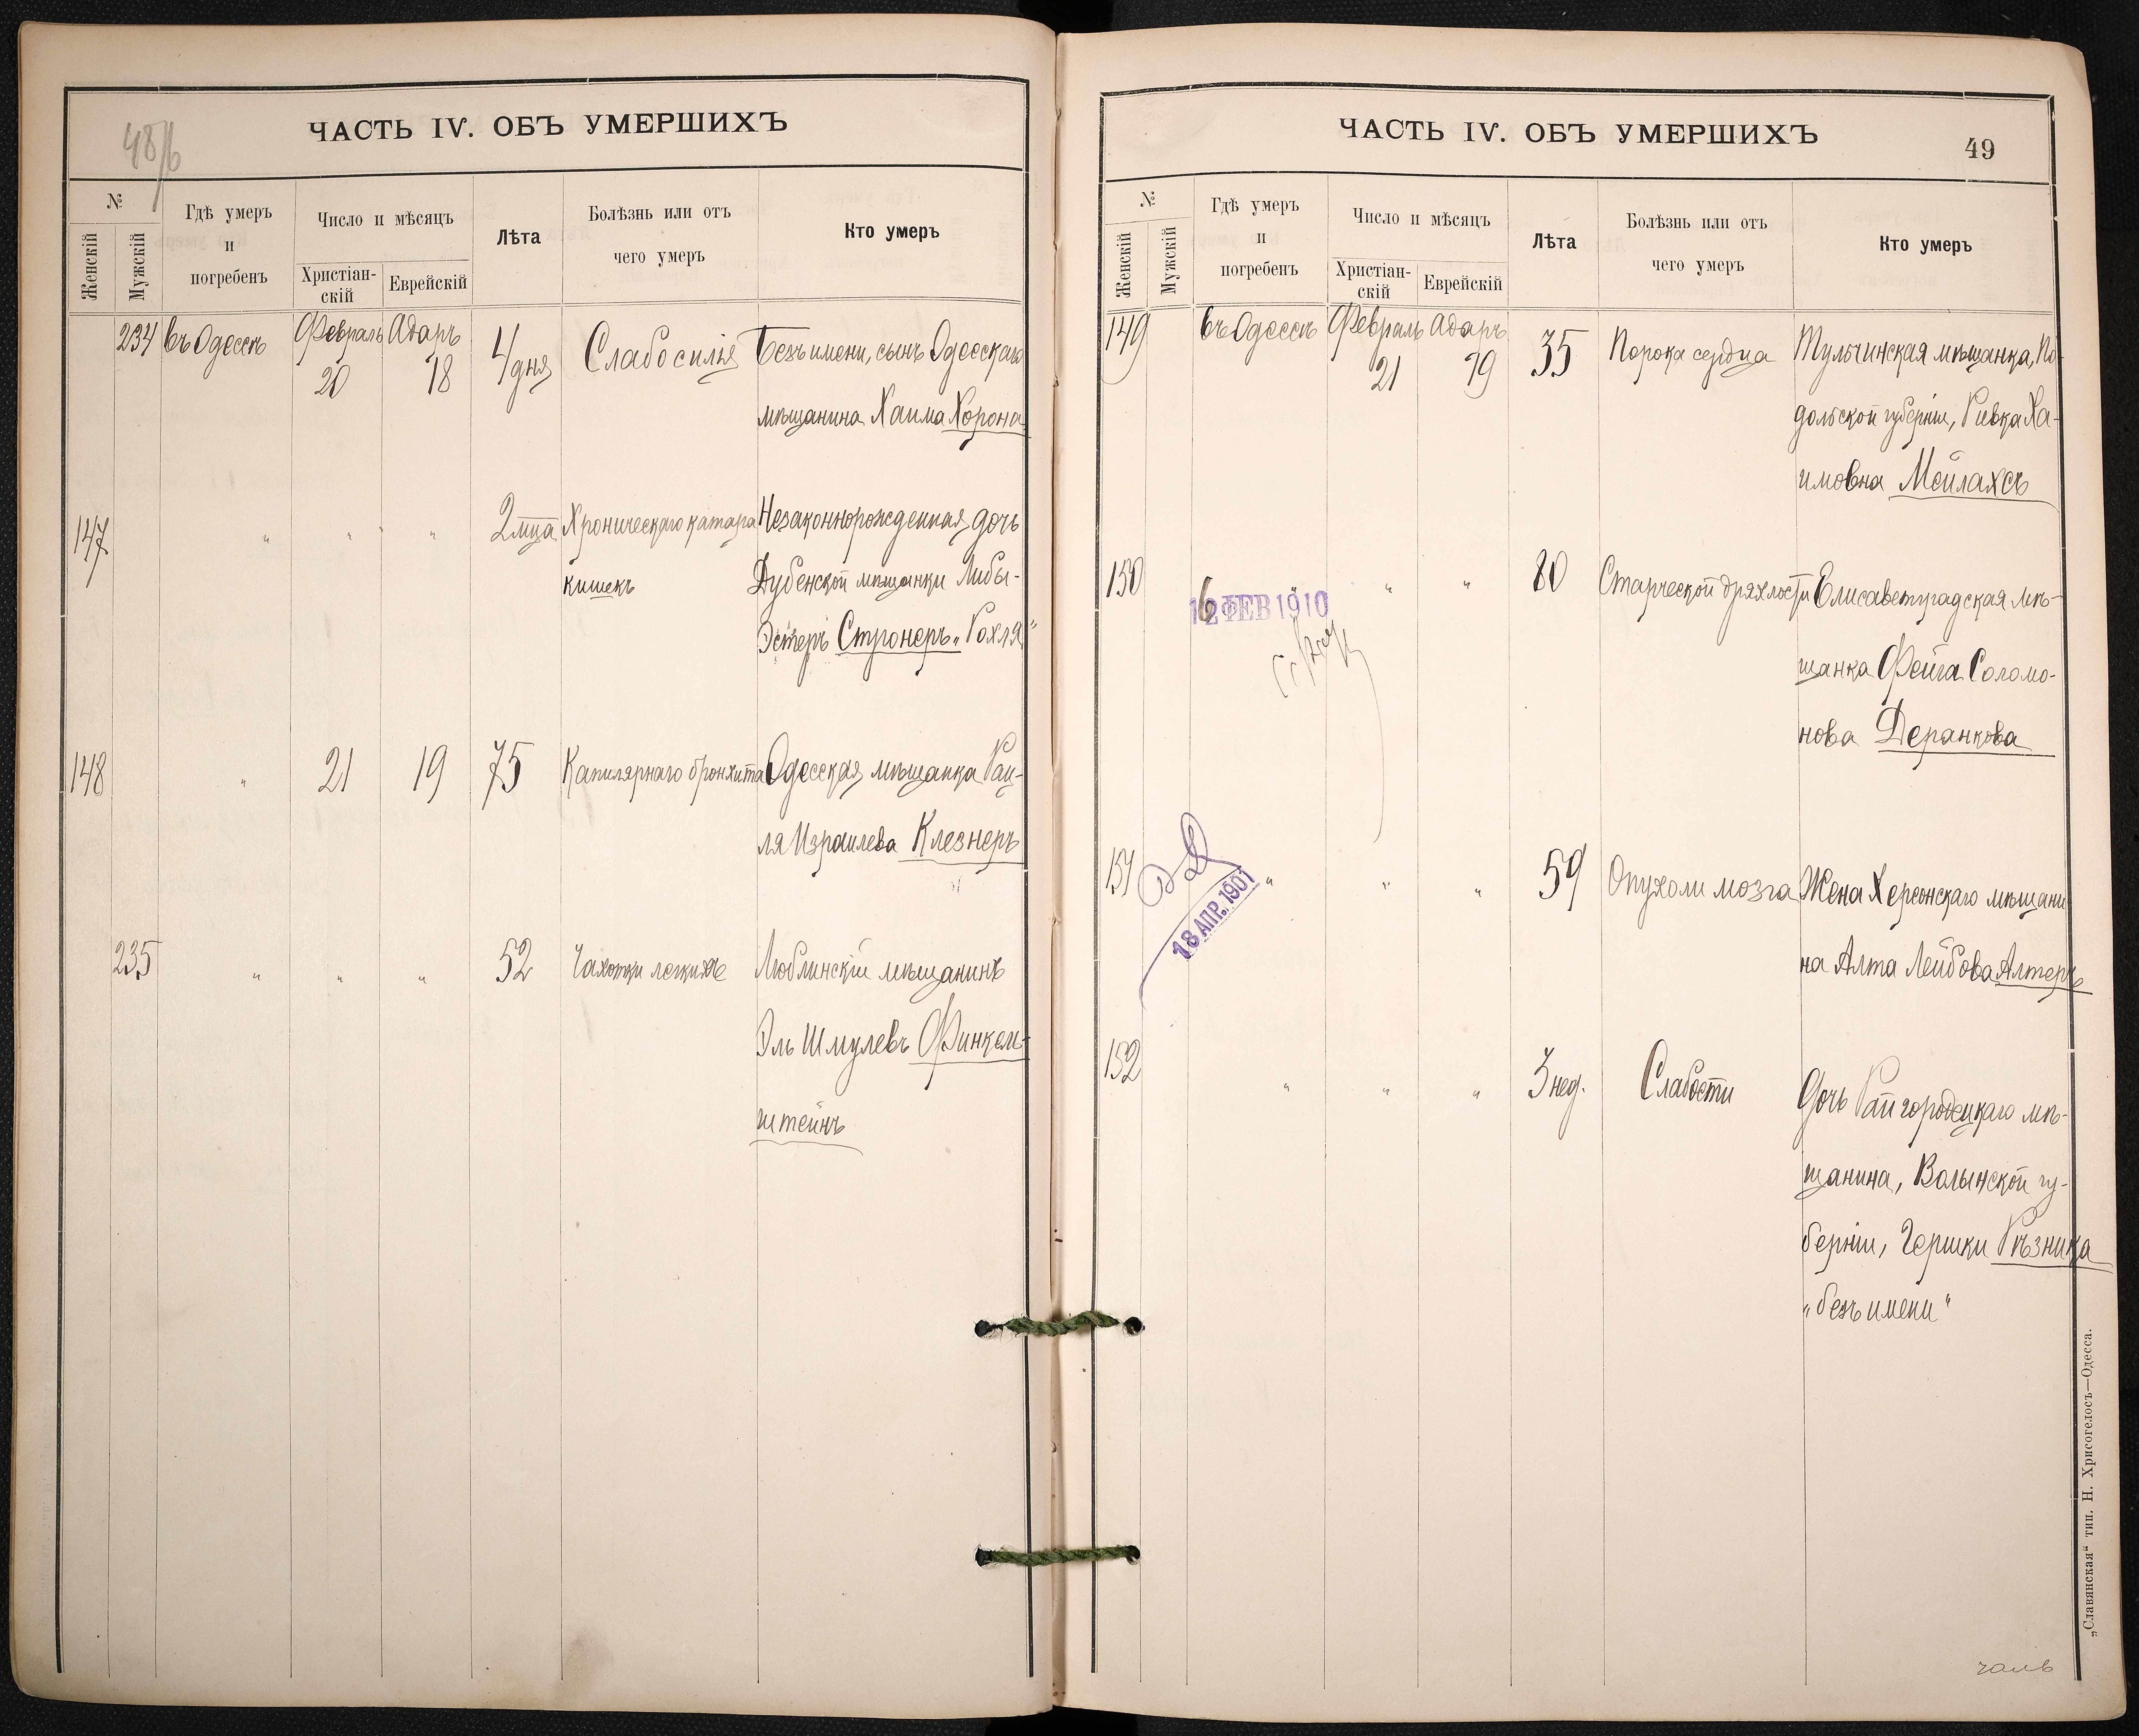 48/b
ЧАСТЬ IV. ОБЪ УМЕРШИХЪ
№
Женскій
Мужскій
Гдѣ умеръ
и
погребенъ
Число и мѣсяцъ
Христіан-
скій
Еврейскій
Лѣта
Болѣзнь или отъ
чего умеръ
Кто умеръ
234 въ Одессѣ Февраль Адаръ 4 Слабосилія Безъ имени, сынъ Одесскаго
20 18 дня
мѣщанина Хаима Хорона
147 " " " 2 мца Хроническаго катара Незаконнорожденная дочь
кишекъ Дубенской мѣщанки Либы-
Эстеръ Стронеръ „Рохля"
148 " 21 19 75 Капилярнаго бронхита Одесская мѣщанка Раи-
ля Израилева Клезнеръ
235 " " " 52 Чахотки легкихъ Люблинскій мѣщанинъ
Эль Шмулевъ Финкель-
штейнъ
ЧАСТЬ IV. ОБЪ УМЕРШИХЪ
49
№
Женскій
Мужскій
Гдѣ умеръ
и
погребенъ
Число и мѣсяцъ
Христіан-
скій
Еврейскій
Лѣта
Болѣзнь или отъ
чего умеръ
Кто умеръ
149 въ Одессѣ Февраль Адаръ 35 Порока сердца Тульчинская мѣщанка, По-
21 19
дольской губерніи, Ривка Ха-
имовна Мейлахсъ
150 " " " 80 Старческой дряхлости Елисаветградская мѣ-
ФЕВ 1910
щанка Фейга Соломо-
нова Деранкова
151 " " " 59 Опухоли мозга Жена Херсонскаго мѣщани
18 АПР. 1901
на Алта Лейбова Алтеръ
152 " " " 3 нед. Слабости Дочь Райгородецкаго мѣ-
щанина, Волынской гу-
берніи, Гершки Рѣзника
„безъ имени"
„Славянская" тип. Н. Хрисогелосъ—Одесса.